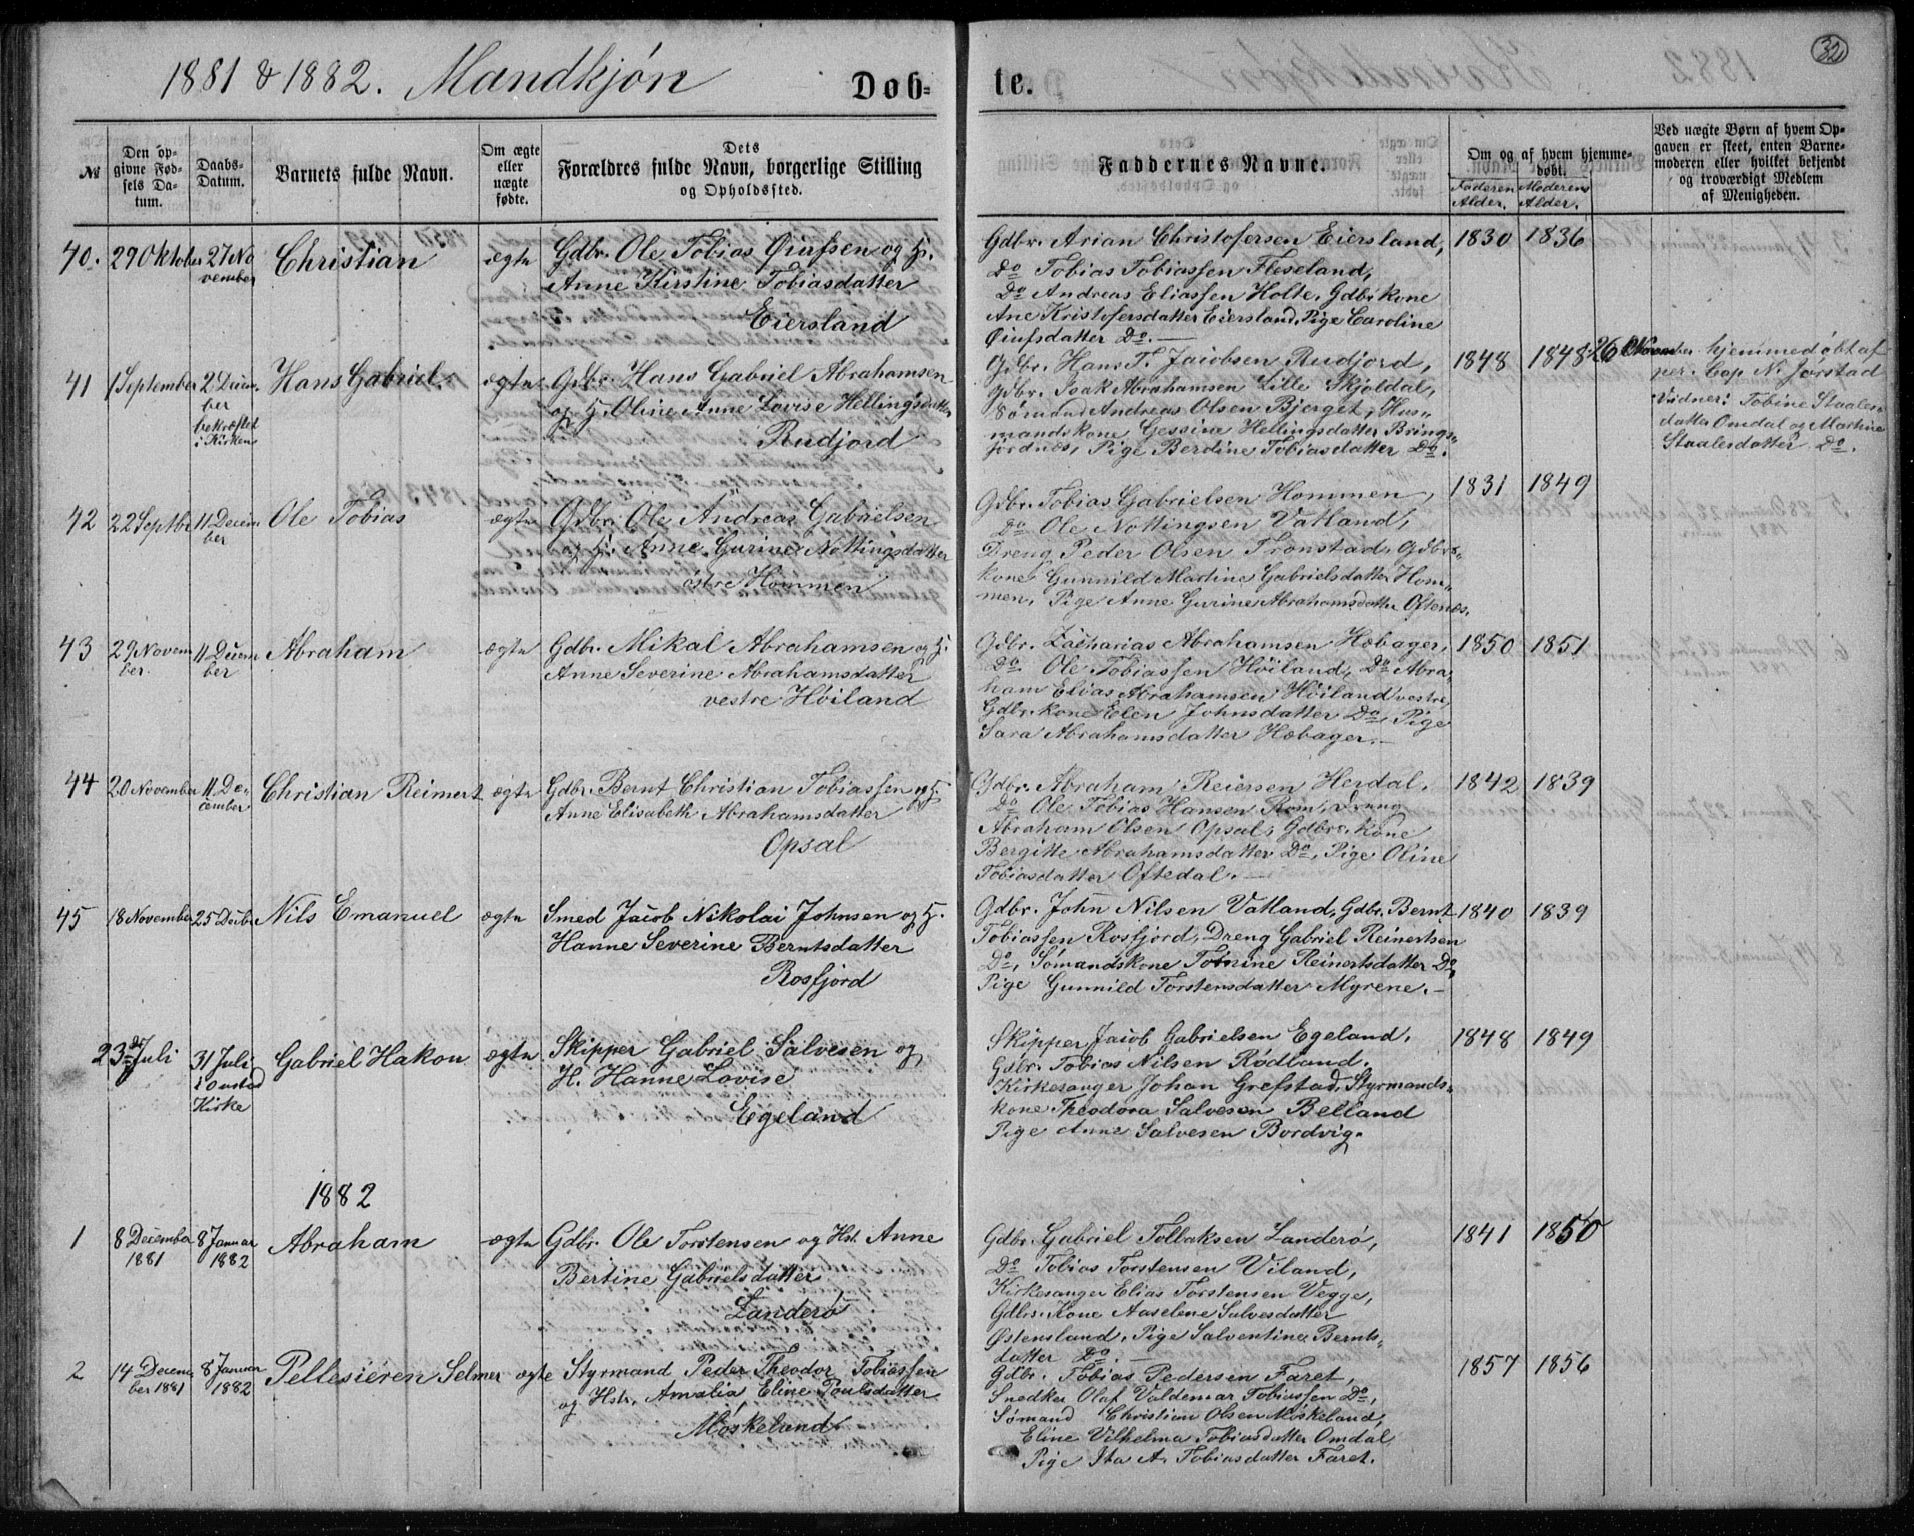 1881 & 1882. Mandkjön Døb= te. 32
№ Den op-givne Fød-sels Da-tum. Daabs-Datum. Barnets fulde Navn. Om ægte eller uægte fødte. Dets Forældres fulde Navn, borgerlige Stilling og Opholdssted. Faddernes Navne. Om og af hvem hjemme-døbt. Faderens Alder. Moderens Alder. Ved uægte Børn af hvem Op-gaven er skeet, enten Barne-moderen eller hvilket bekjendt og troværdigt Medlem af Menigheden.
40. 29 Oktober 27 No vember Christian ægte
Gdbr. Ole Tobias Øiufsen og H.
Anne Kirstine Tobiasdatter
Eiersland
Gdbr. Arian Christofersen Eiersland, 1830 1836
Do Tobias Tobiassen Fleseland,
Do Andreas Eliassen Holte, Gdbrkone
Ane Kristofersdatter Eiersland, Pige Caroline
Øiufsdatter Do. —
41 1 September 2 Decem ber bekræftet i Kirken Hans Gabriel. ægte
Gdbr. Hans Gabriel Abrahamsen
og H. Oline Anne Lovise Hellingsdatter
Rudjord
Gdbr. Hans T. Jacobsen Rudjord, 1848 1848
Gdbr. Isak Abrahamsen Lille Skjoldal,
Sømand Andreas Olsen Bjerget, Hus=
mandskone Gessine Hellingsdatter Brings=
jordnes, Pige Berdine Tobiasdatter Do.
26 November hjemmedøbt af
per. Cap. N. Jorstad
Vidner: Tobine Staales=
datter Omdal og Martine
Staalesdatter Do.
42 22 Septbr 11 Decem ber Ole Tobias ægte
Gdbr. Ole Andreas Gabrielsen
og H. Anne Gurine Nottingsdatter
østre Hommen
Gdbr. Tobias Gabrielsen Hommen, 1831 1849
Do Ole Nottingsen Vatland,
Dreng Peder Olsen Tronstad, Gdbrs=
kone Gunnild Martine Gabrielsdatter Hom=
men, Pige Anne Gurine Abrahamsdatter Oftenæs.
43 29 Novem ber. 11 Decem ber Abraham ægte
Gdbr. Mikal Abrahamsen og H.
Anne Severine Abrahamsdatter
vestre Høiland
Gdbr. Zacharias Abrahamsen Hæbager, 1850 1851
Do Ole Tobiassen Høiland, Do Abra=
ham Elias Abrahamsen Høiland vestre,
Gdbr.kone Elen Johnsdatter Do, Pige
Sara Abrahamsdatter Hæbager. —
44 20 November 11 De= cember Christian Reimert ægte
Gdbr. Bernt Christian Tobiassen og H.
Anne Elisabeth Abrahamsdatter
Opsal
Gdbr. Abraham Reiersen Herdal, 1842 1839
Do Ole Tobias Hansen Rom, Dreng
Abraham Olsen Opsal, Gdbrs. kone
Bergitte Abrahamsdatter Do, Pige Oline
Tobiasdatter Oftedal. —
45 18 November 25 Decbr Nils Emanuel ægte
Smed Jacob Nikolai Johnsen og H.
Hanne Severine Berntsdatter
Rosfjord
Gdbr. John Nilsen Vatland, Gdbr. Bernt 1840 1839
Tobiassen Rosfjord, Dreng Gabriel Reinertsen
Do, Sømandskone Tomine Reinertsdatter Do
Pige Gunnild Torstensdatter Myrene. —
23de Juli 31 Juli i Onstad Kirke Gabriel Hakon ægte
Skipper Gabriel Salvesen og
H. Hanne Lovise
Egeland
Skipper Jacob Gabrielsen Egeland, 1848 1849
Gdbr. Tobias Nilsen Rødland,
Kirkesanger Johan Grefstad, Styrmands=
kone Theodora Salvesen Belland
Pige Anne Salvesen Bordvig.
1882
1 8 December 1881 8 Januar 1882 Abraham ægte
Gdbr. Ole Torstensen og Hst. Anne
Bertine Gabrielsdatter
Landerø
Gdbr. Gabriel Tollaksen Landerø, 1841 1850
Do Tobias Torstensen Viland,
Kirkesanger Elias Torstensen Vegge,
Gdbr. Kone Aaselene Salvesdatter
Østensland, Pige Salventine Bernts=
datter Do. —
2 14 Decem ber 1881 8 Januar 1882 Pellesieren Selmer ægte
Styrmand Peder Theodor Tobiassen
og Hstr. Amalia Eline Paulsdatter
Møskeland
Gdbr. Tobias Pedersen Faret, 1857 1856
Snedker Olaf Valdemar Tobiassen Do,
Sømand Christian Olsen Møskeland,
Eline Vilhelma Tobiasdatter Omdal,
Pige Ita A. Tobiasdatter Faret.